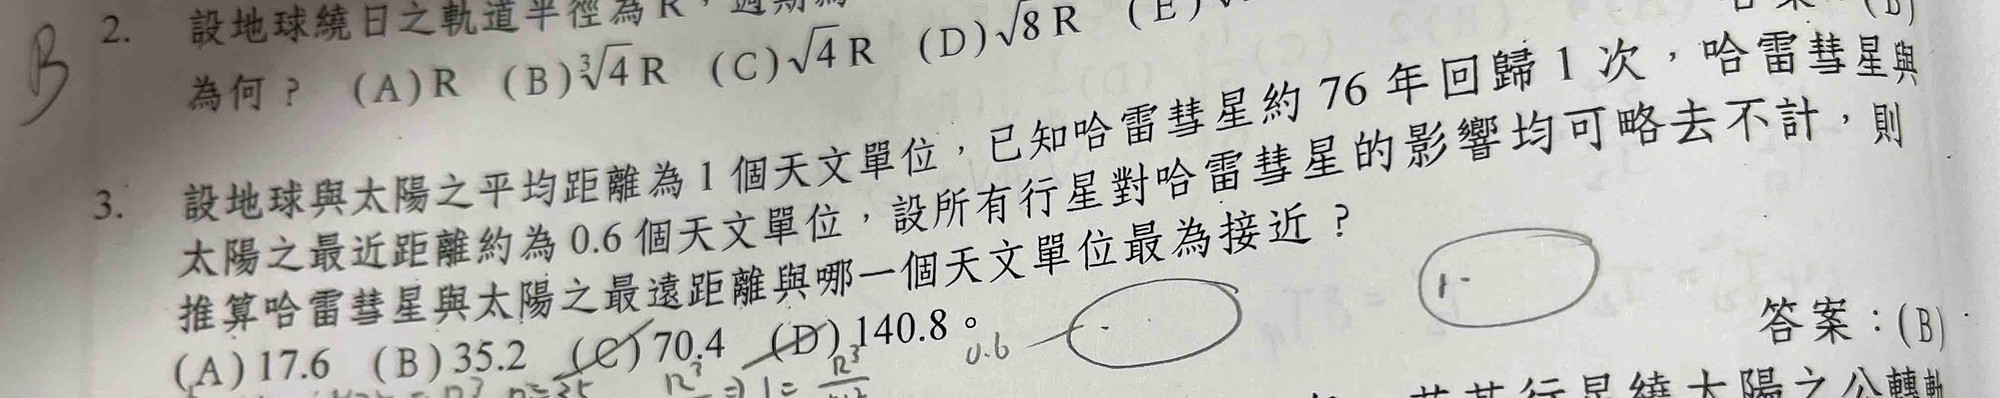 B
2. 設地球繞日之軌道半徑為R，週期為
為何？ (A)R (B)∛4R (C)√4R (D)√8R (E)
3. 設地球與太陽之平均距離為1個天文單位，已知哈雷彗星約76年回歸1次，哈雷彗星與
太陽之最近距離約為0.6個天文單位，設所有行星對哈雷彗星的影響均可略去不計，則
推算哈雷彗星與太陽之最遠距離與哪一個天文單位最為接近？
(A)17.6 (B)35.2 (C)70.4 (D)140.8。
0.6
答案：(B)